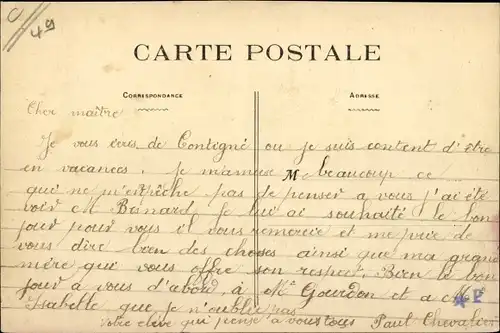 C
49
CARTE POSTALE
CORRESPONDANCE
ADRESSE
Cher maître
Je vous écris de Contigné ou je suis content d'être
en vacances. je m'amuse beaucoup ce
qui ne m'empêche pas de penser a vous j'ai été
voir M Besnard Je lui ai souhaité le bon
jour pour vous il vous remercie et me prie de
vous dire bien des choses ainsi que ma grand
mère qui vous offre son respect. Bien le bon
jour à vous d'abord à Mr Gourdon et a Mlle
Isabelle que je n'oublie pas
Votre élève qui pense a vous tous Paul Chevalier